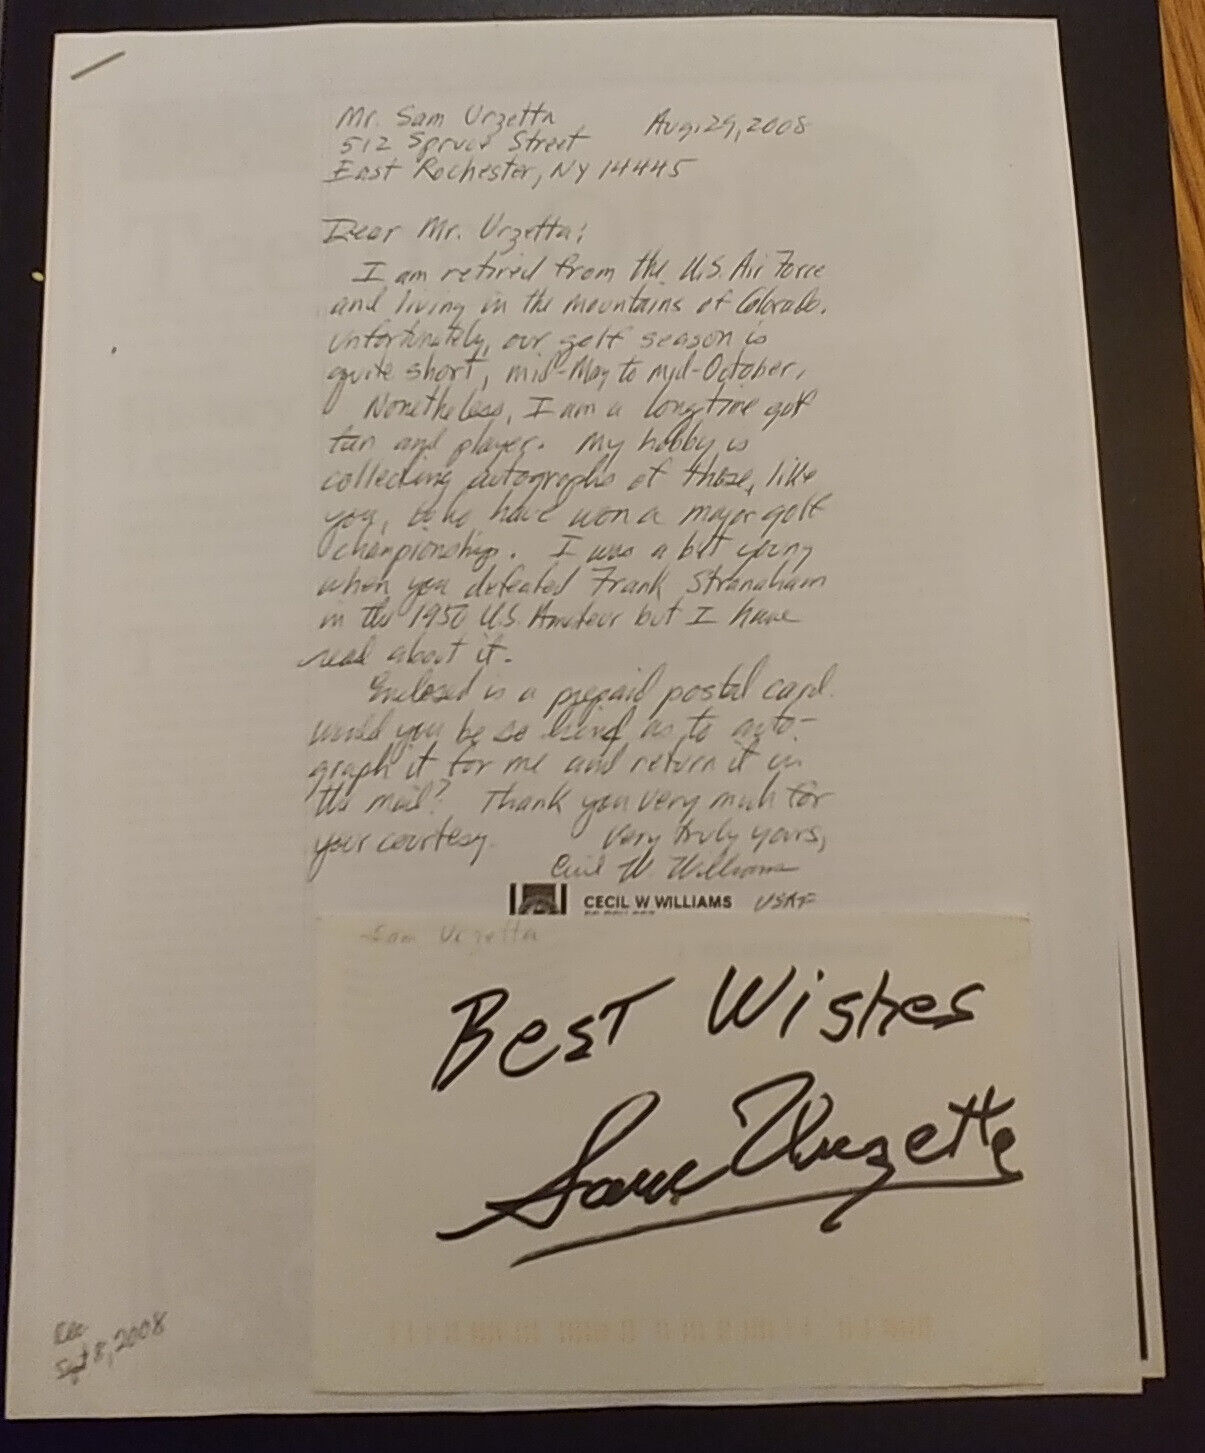 Mr. Sam Urzetta Aug. 29, 2008
512 Spruce Street
East Rochester, NY 14445
Dear Mr. Urzetta:
I am retired from the U.S. Air Force
and living in the mountains of Colorado.
Unfortunately, our golf season is
quite short, mid-May to mid-October.
Nonetheless, I am a longtime golf
fan and player. My hobby is
collecting autographs of those, like
you, who have won a major golf
championship. I was a bit young
when you defeated Frank Stranaham
in the 1950 U.S. Amateur but I have
read about it.
Enclosed is a prepaid postal card.
Would you be so kind as to auto-
graph it for me and return it in
the mail? Thank you very much for
your courtesy. Very truly yours,
Cecil W Williams
CECIL W WILLIAMS USAF
Sam Urzetta
Best Wishes
Sam Urzetta
Rec
Sept 8, 2008